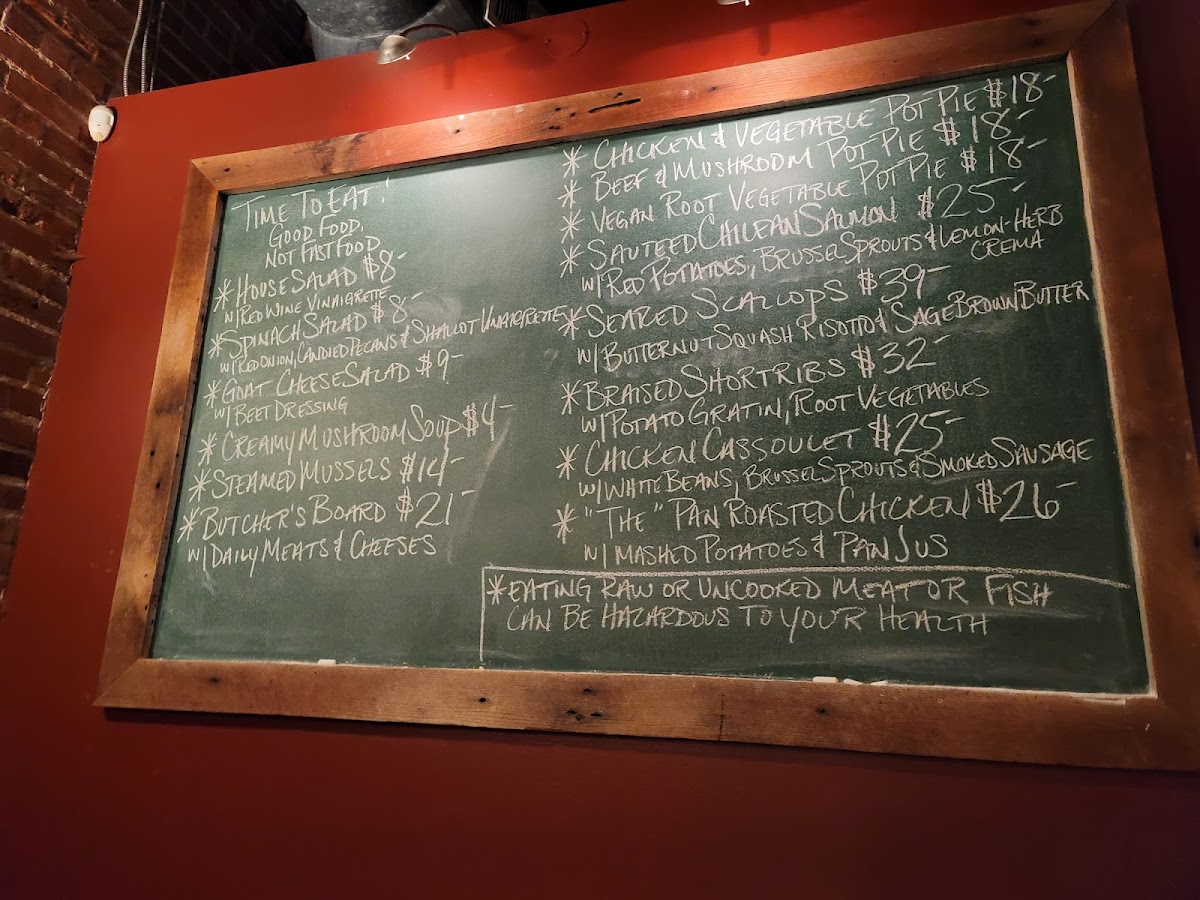 TIME TO EAT!
GOOD FOOD,
NOT FAST FOOD
*HOUSE SALAD $8-
W/RED WINE VINAIGRETTE
*SPINACH SALAD $8-
W/REDONION, CANDIED PECANS & SHALLOT VINAIGRETTE
*GOAT CHEESE SALAD $9-
W/BEET DRESSING
*CREAMY MUSHROOM SOUP $4-
*STEAMED MUSSELS $14-
*BUTCHER'S BOARD $21-
W/DAILY MEATS & CHEESES
*CHICKEN & VEGETABLE POT PIE $18-
*BEEF & MUSHROOM POT PIE $18-
*VEGAN ROOT VEGETABLE POT PIE $18-
*SAUTEED CHILEAN SALMON $25-
W/RED POTATOES, BRUSSEL SPROUTS & LEMON-HERB
CREMA
*SEARED SCALLOPS $39-
W/BUTTERNUT SQUASH RISOTTO & SAGE BROWN BUTTER
*BRAISED SHORTRIBS $32-
W/POTATO GRATIN, ROOT VEGETABLES
*CHICKEN CASSOULET $25-
W/WHITE BEANS, BRUSSEL SPROUTS & SMOKED SAUSAGE
*"THE" PAN ROASTED CHICKEN $26-
W/MASHED POTATOES & PAN JUS
*EATING RAW OR UNCOOKED MEAT OR FISH
CAN BE HAZARDOUS TO YOUR HEALTH